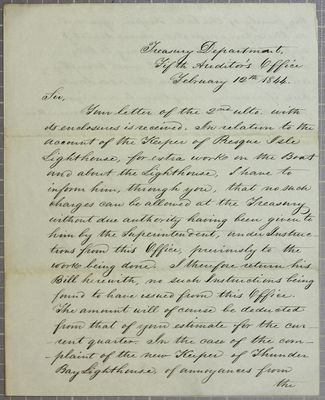 Treasury Department,
Fifth Auditor's Office
February 12th 1844.
Sir,
Your letter of the 2nd ulto. with
its enclosures is received. In relation to the
account of the Keeper of Presque Isle
Lighthouse, for extra work on the Boat
and about the Lighthouse, I have to
inform him, through you, that no such
charges can be allowed at the Treasury
without due authority having been given to
him by the Superintendent, under Instruc-
tions from this Office, previously to the
work being done. I therefore return his
Bill herewith, no such Instructions being
found to have issued from this Office.
The amount will of course be deducted
from that of your estimate for the cur-
rent quarter. In the case of the com-
plaint of the new Keeper of Thunder
Bay Lighthouse, of annoyances from
the